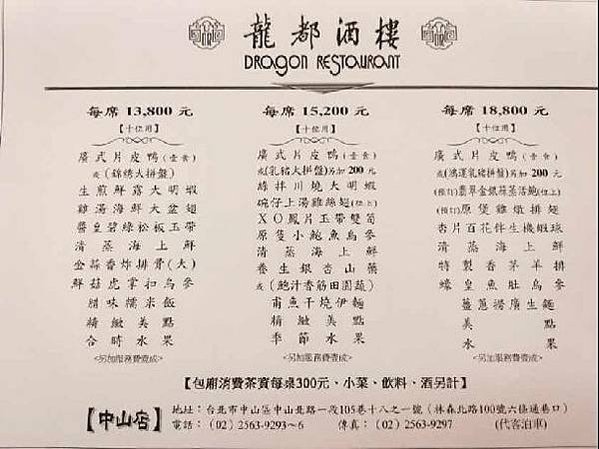 龍都酒樓
DRagon RESTauRanT
每席 13,800 元
【十位用】
廣式片皮鴨(壹食)
或(錦綉大拼盤)
生煎鮮露大明蝦
雞湯海鮮大盆翅
醬皇碧綠松板玉帶
清蒸海上鮮
金蒜香炸排骨(大)
鮮菇虎掌扣烏參
腊味糯米飯
精緻美點
合時水果
<另加服務費壹成>
每席 15,200 元
【十位用】
廣式片皮鴨(壹食)
或(乳豬大拼盤)另加 200 元
絲拌川燒大明蝦
碗仔上湯雞絲翅(位上)
XO鳳片玉帶雙筍
原隻小鮑魚烏參
清蒸海上鮮
養生銀杏山藥
或(鮑汁香筋田園蔬)
甫魚干燒伊麵
精緻美點
季節水果
<另加服務費壹成>
每席 18,800 元
【十位用】
廣式片皮鴨(壹食)
或(鴻運乳豬拼盤)另加 200元
(預訂)翡翠金銀蒜蒸活鮑(位上)
(預訂)原煲雞燉排翅
杏片百花伴生機蝦球
清蒸海上鮮
特製香茅羊排
蠔皇魚肚烏參
薑蔥撈廣生麵
美點
水果
<另加服務費壹成>
【包廂消費茶資每桌300元、小菜、飲料、酒另計】
【中山店】
地址：台北市中山區中山北路一段105巷十八之一號（林森北路100號六條通巷口）
電話：（02）2563-9293~6 傳真：（02）2563-9297 (代客泊車)